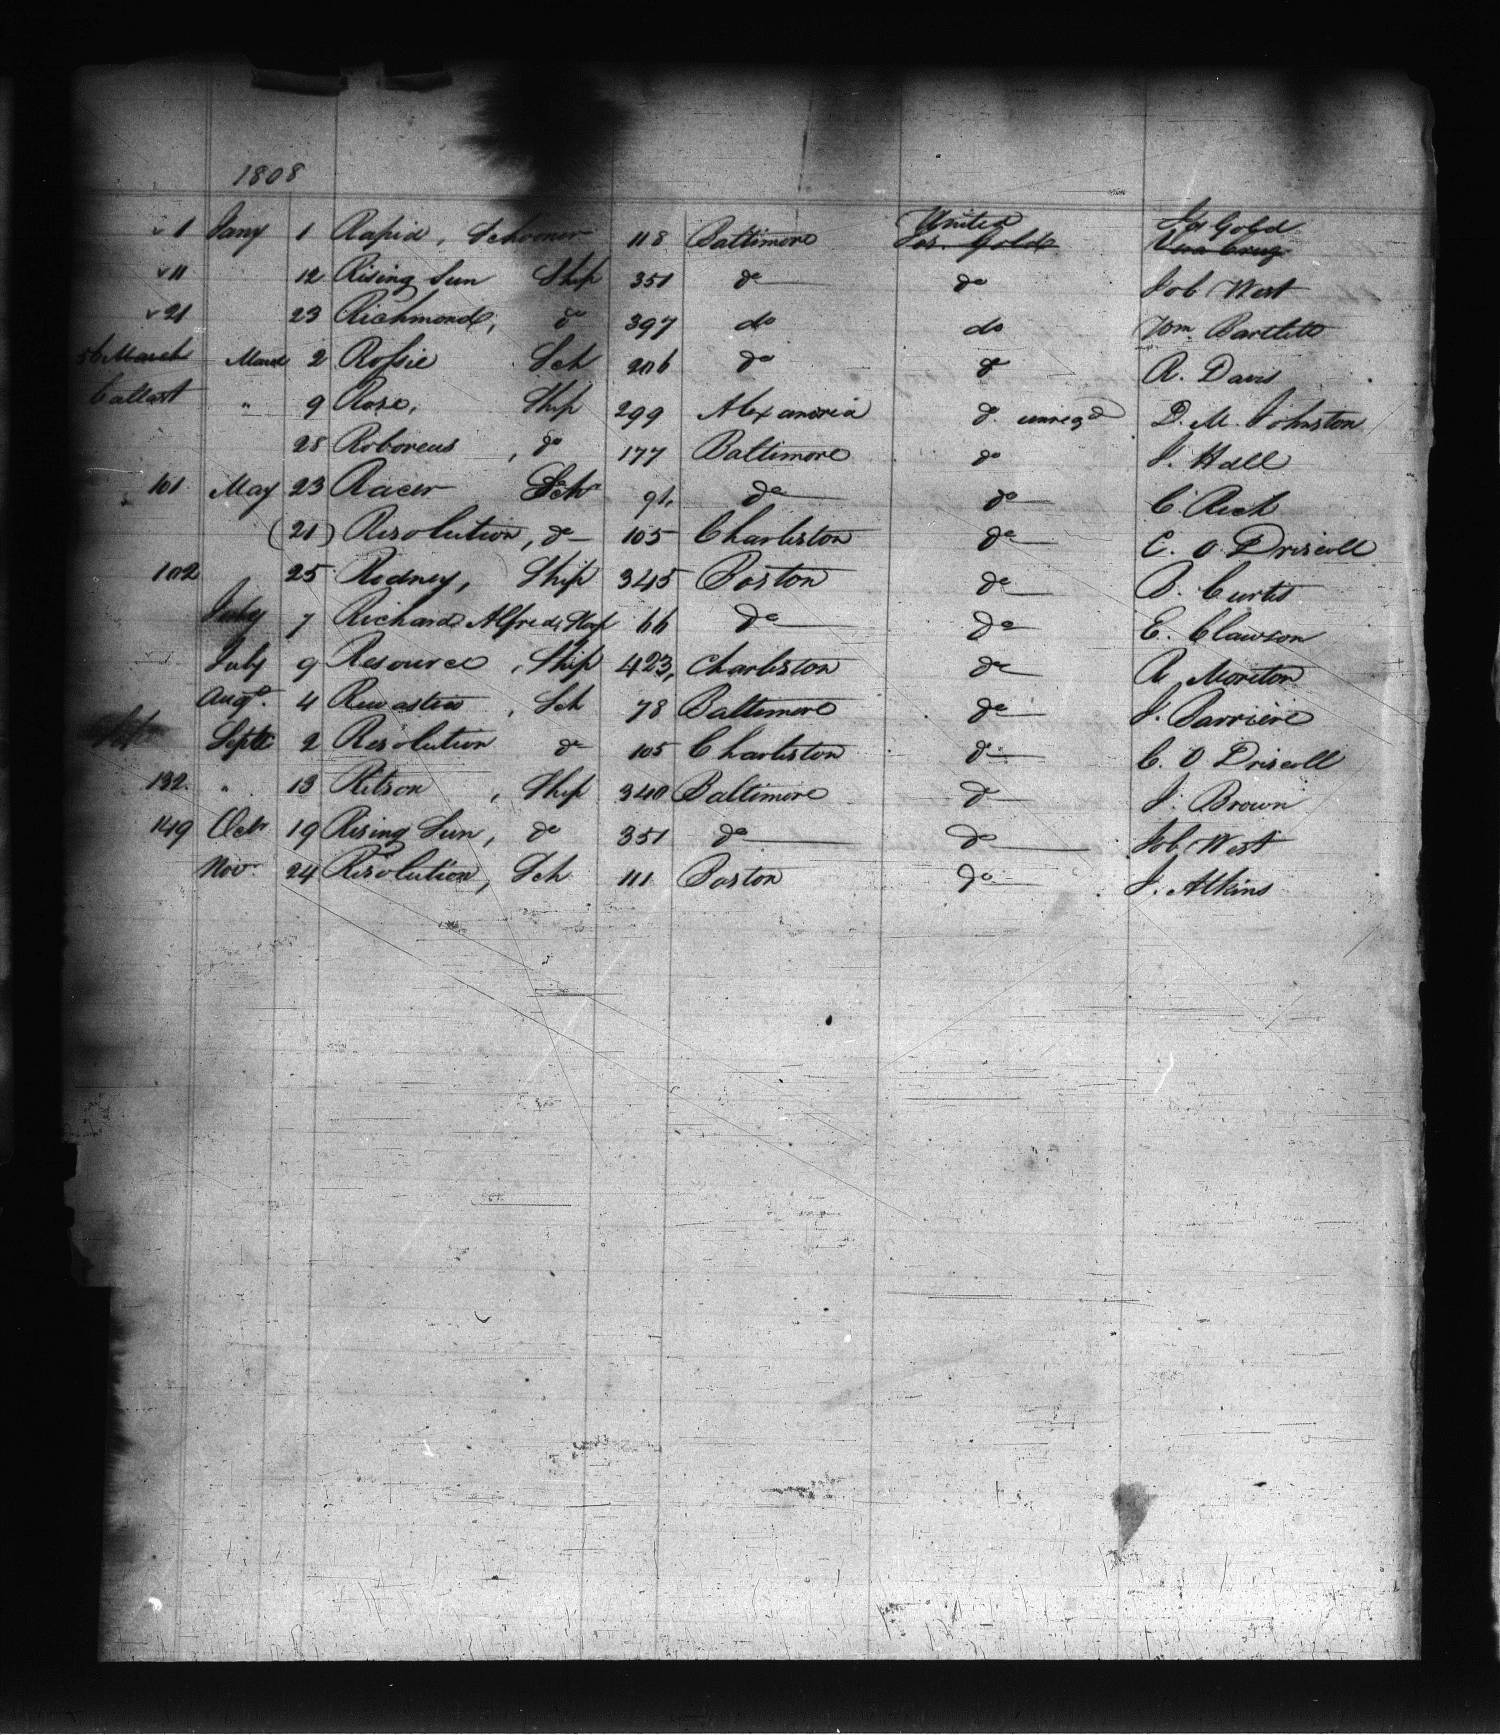 1808
1 Jany 1 Rapid, Schooner 118 Baltimore United Jas. Gold
Jas. Gold Vera Cruz
11 12 Rising Sun Ship 351 do do Job West
21 23 Richmond, do 397 do do Wm. Bartlett
56 March March 2 Rossie Sch 206 do do R. Davis
ballast " 9 Rose, Ship 299 Alexandria do unregd D. M. Johnston
28 Roboreus, do 177 Baltimore do J. Hall
101 May 23 Racer Sch 91, do do C. Rich
(21) Resolution, do 105 Charleston do C. O Driscoll
102 25 Rodney, Ship 345 Boston do B. Curtis
July 7 Richard Alfred, 66 do do E. Clawson
July 9 Resource, Ship 423, Charleston do R. Moreton
Augt. 4, Sch 78 Baltimore do J. Barriere
Sept Septr 2 Resolution do 105 Charleston do C. O Driscoll
132. " 13 Ritson, Ship 340 Baltimore do J. Brown
149 Octr 19 Rising Sun, do 351 do do Job West
Novr 24 Resolution, Sch 111 Boston do J. Atkins